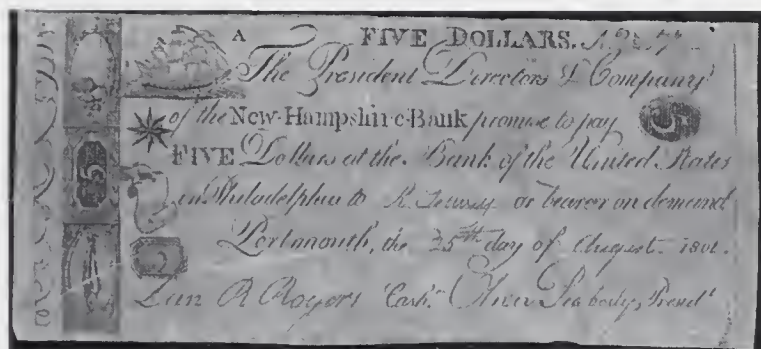 A FIVE DOLLARS. No
The President Directors & Company
of the New-Hampshire-Bank promise to pay 5
FIVE Dollars at the Bank of the United States
5
in Philadelphia to or bearer on demand
Portsmouth, the 25th day of August 1801.
Rogers Cashr. Oliver Peabody, Presdt